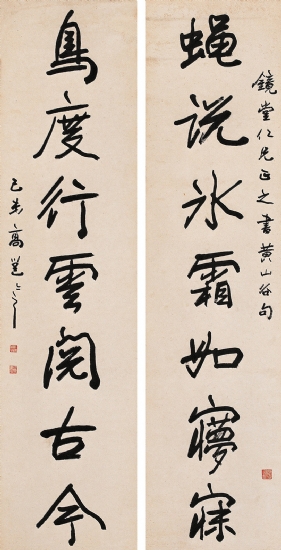 鏡堂仁兄正之書黃山谷句
蠅說冰霜如夢寐
鳥度行雲閱古今
己未高邕之